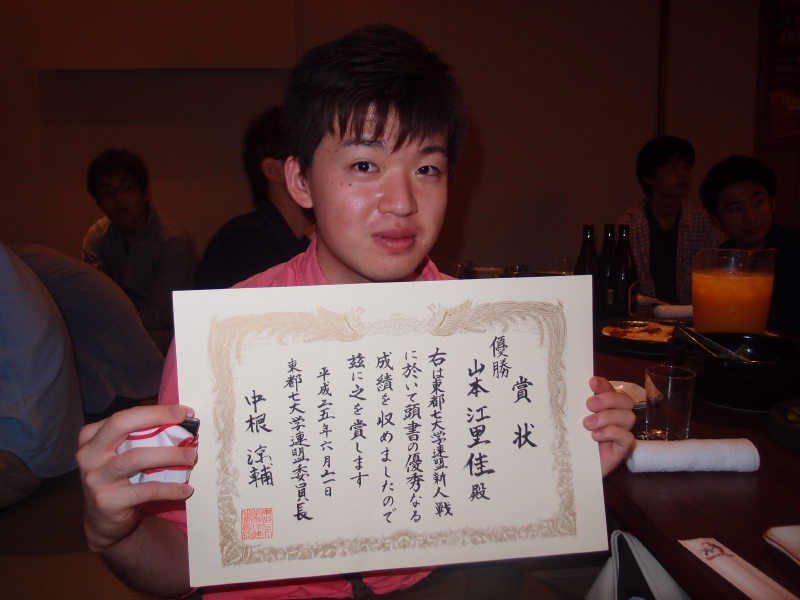 賞状
優勝
山本江里佳殿
右は東都七大学連盟新人戦
に於いて頭書の優秀なる
成績を収めましたので
茲に之を賞します
平成二五年六月二日
東都七大学連盟委員長
中根涼輔